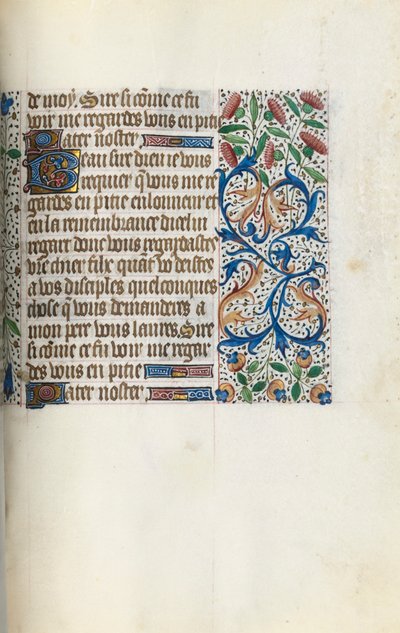 de moy. Sire si cõme ce fu
voir me regardes vous en pitie
Pater noster
Beau sire dieu ie vous
requier q̃ vous me re
gardes en pitie en lonneur et
en la remembrance dicelui
regart donc vous regardastes
vře chier filz quãt vo deistes
a vos disciples quelconques
chose q̃ vous demanderes a
mon pere vous laures. Sire
si cõme ce fu voir me regar
des vous en pitie
Pater noster.